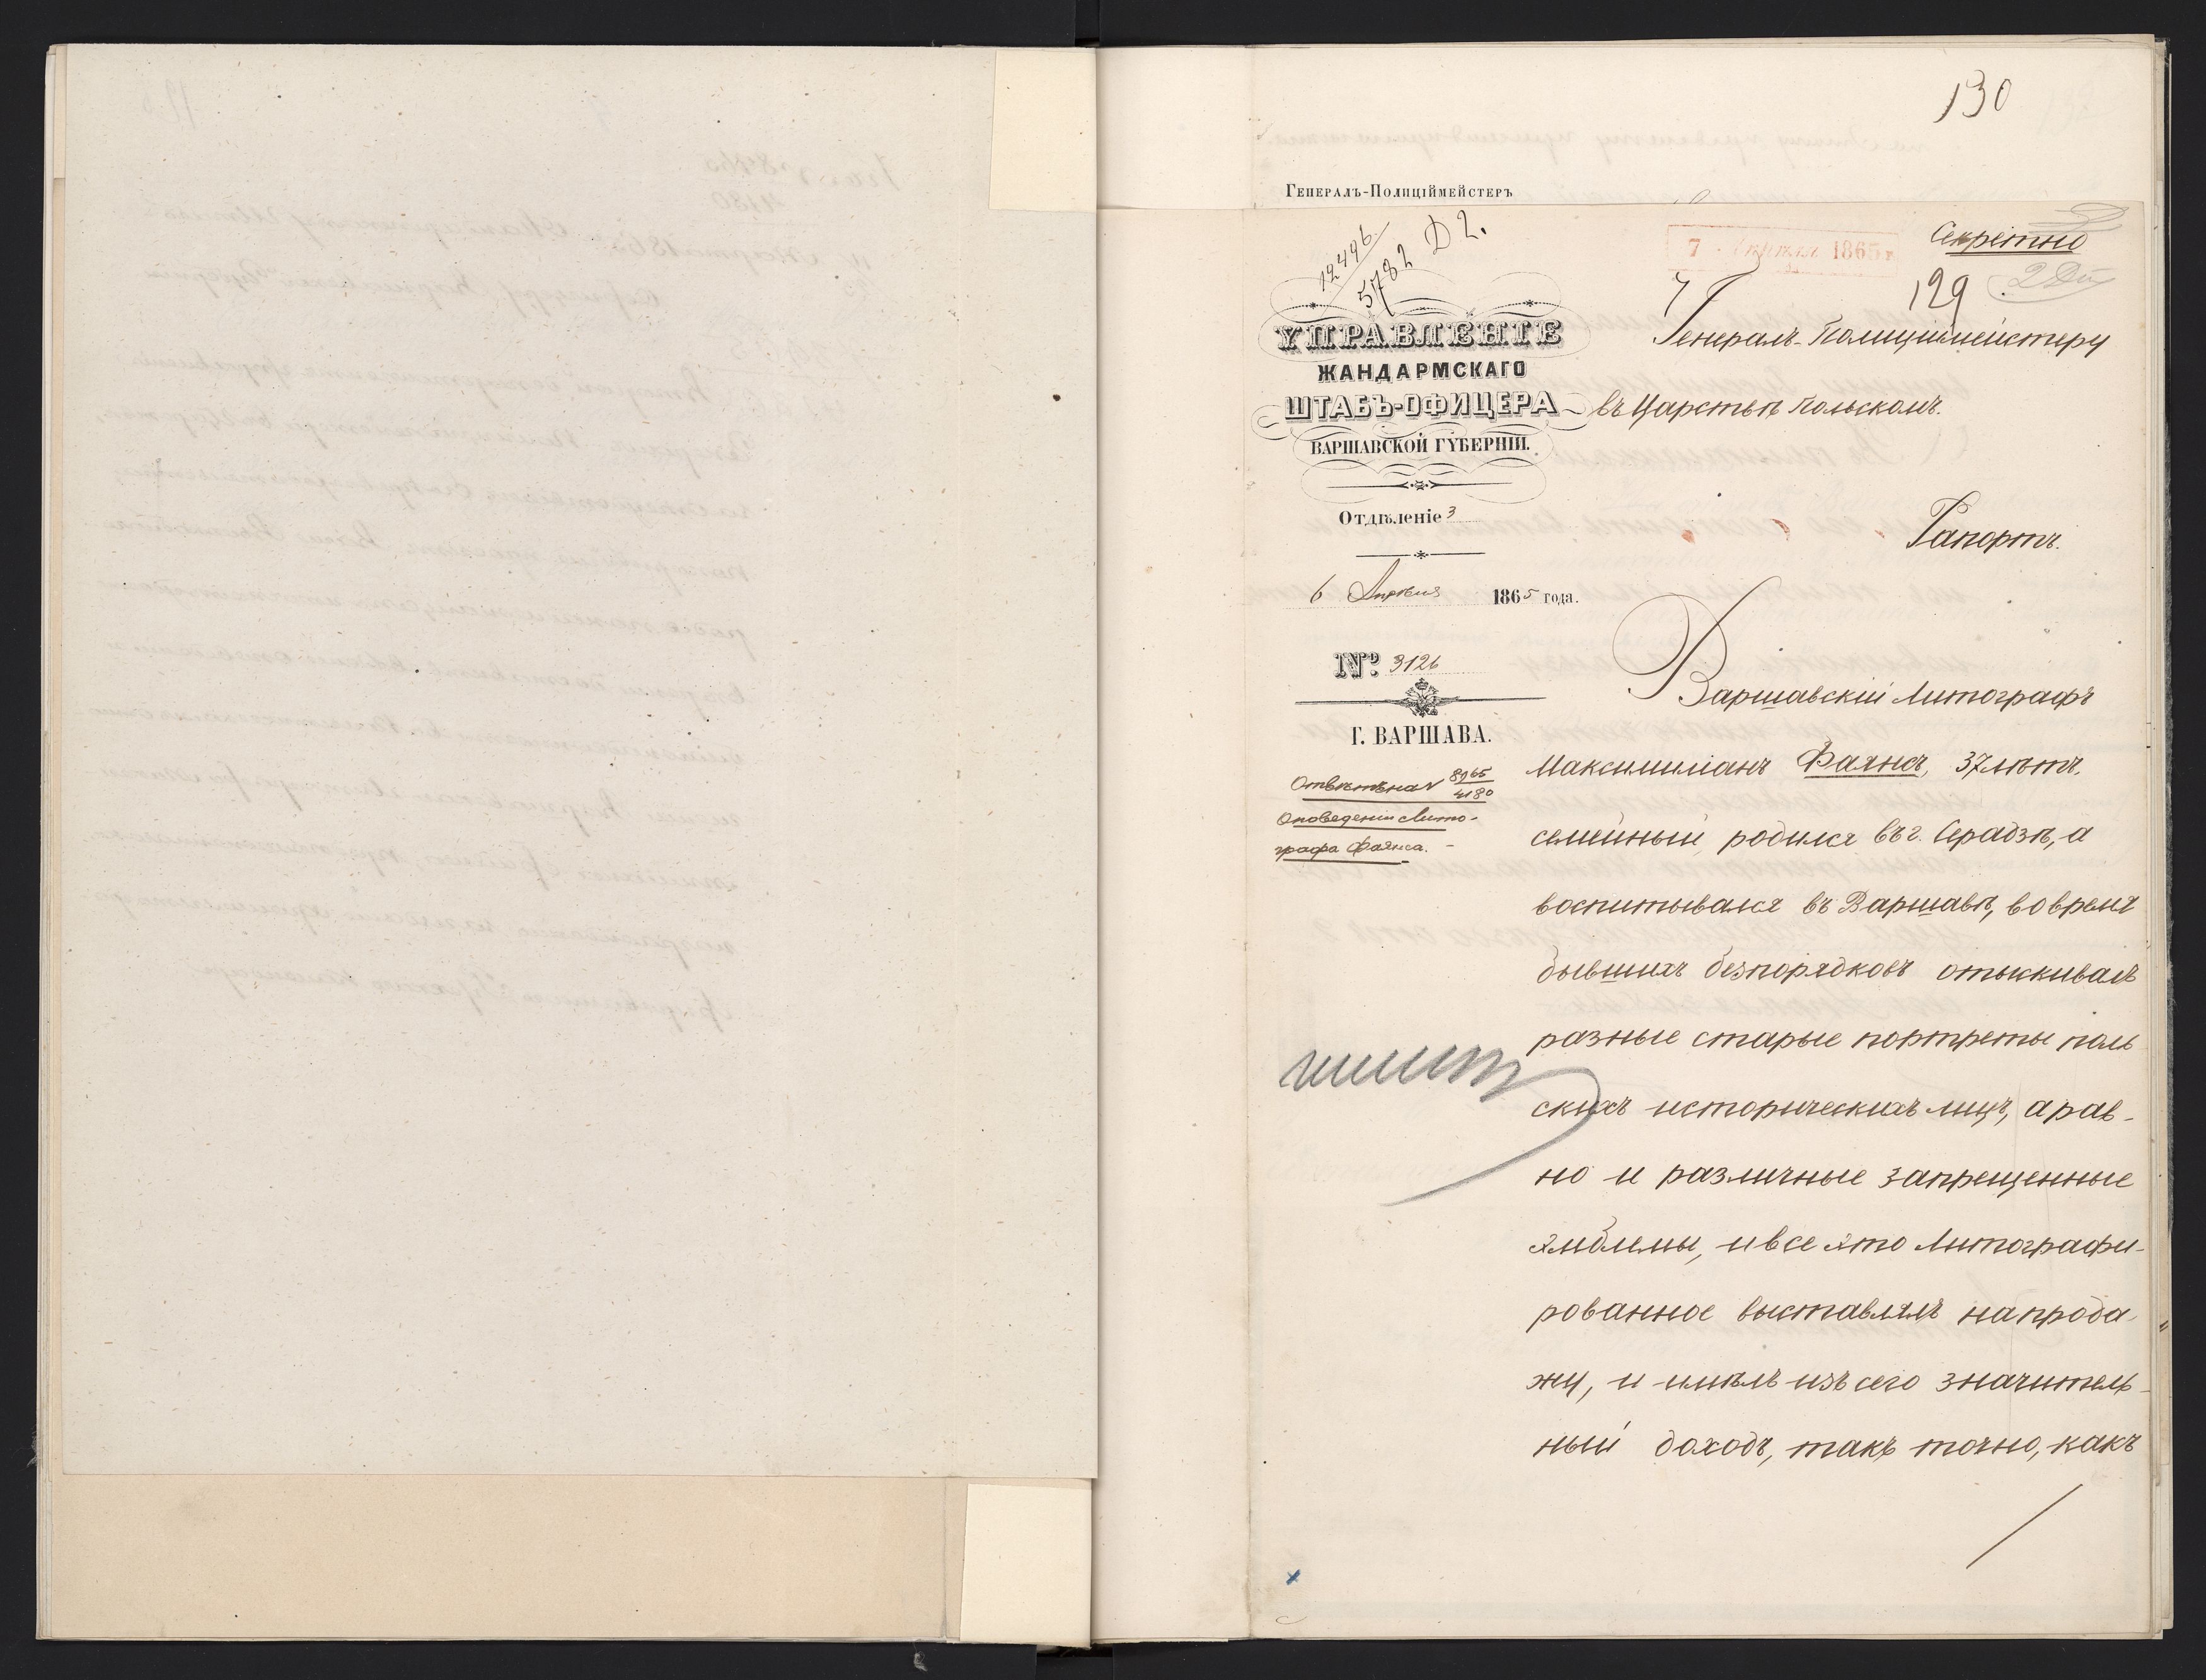 130
Генералъ-Полиціймейстеръ
12496
5782 Д 2.
7 Апрѣля 1865 г.
Секретно
129
УПРАВЛЕНІЕ
ЖАНДАРМСКАГО
ШТАБЪ-ОФИЦЕРА
ВАРШАВСКОЙ ГУБЕРНІИ.
Отдѣленіе 3
6 Апрѣля 1865 года.
№ 3126
Г. ВАРШАВА.
Отвѣтъ на № 8965
4180
О поведеніи Лито-
графа Фаянса. -
Генералъ-Полиціймейстеру
въ Царствѣ Польскомъ.
Рапортъ.
Варшавскій Литографъ
Максимиліанъ Фаянсъ, 37 лѣтъ,
семейный, родился въ г. Серадзѣ, а
воспитывался въ Варшавѣ, во время
бывшихъ безпорядковъ отыскивалъ
разные старые портреты поль
скихъ историческихъ лицъ, а рав-
но и различные запрещенные
эмблемы, и все это литографи-
рованное выставлялъ на прода-
жу, и имѣлъ изъ сего значитель-
ный доходъ, такъ точно, какъ